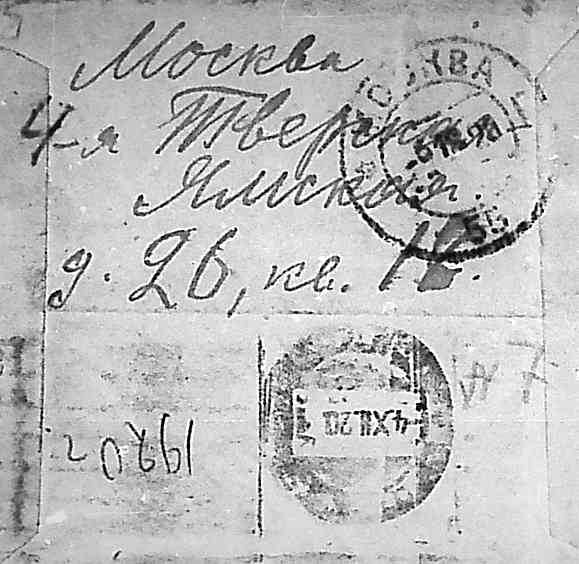 Москва
4-я Тверская
Ямская
д. 26, кв. 12.
МОСКВА
4 XII 20
1920 г